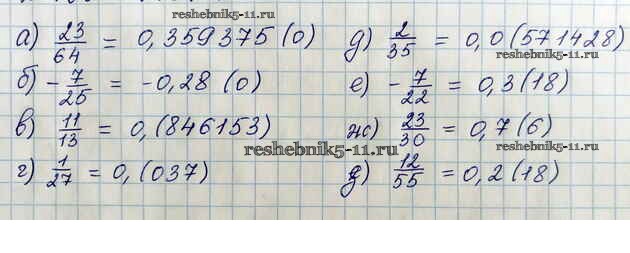 reshebnik5-11.ru
а) 23/64 = 0,359375(0)
б) -7/25 = -0,28(0)
в) 11/13 = 0,(846153)
г) 1/27 = 0,(037)
д) 2/35 = 0,0(571428)
reshebnik5-11.ru
е) -7/22 = 0,3(18)
ж) 23/30 = 0,7(6)
reshebnik5-11.ru
reshebnik5-11.ru
з) 12/55 = 0,2(18)